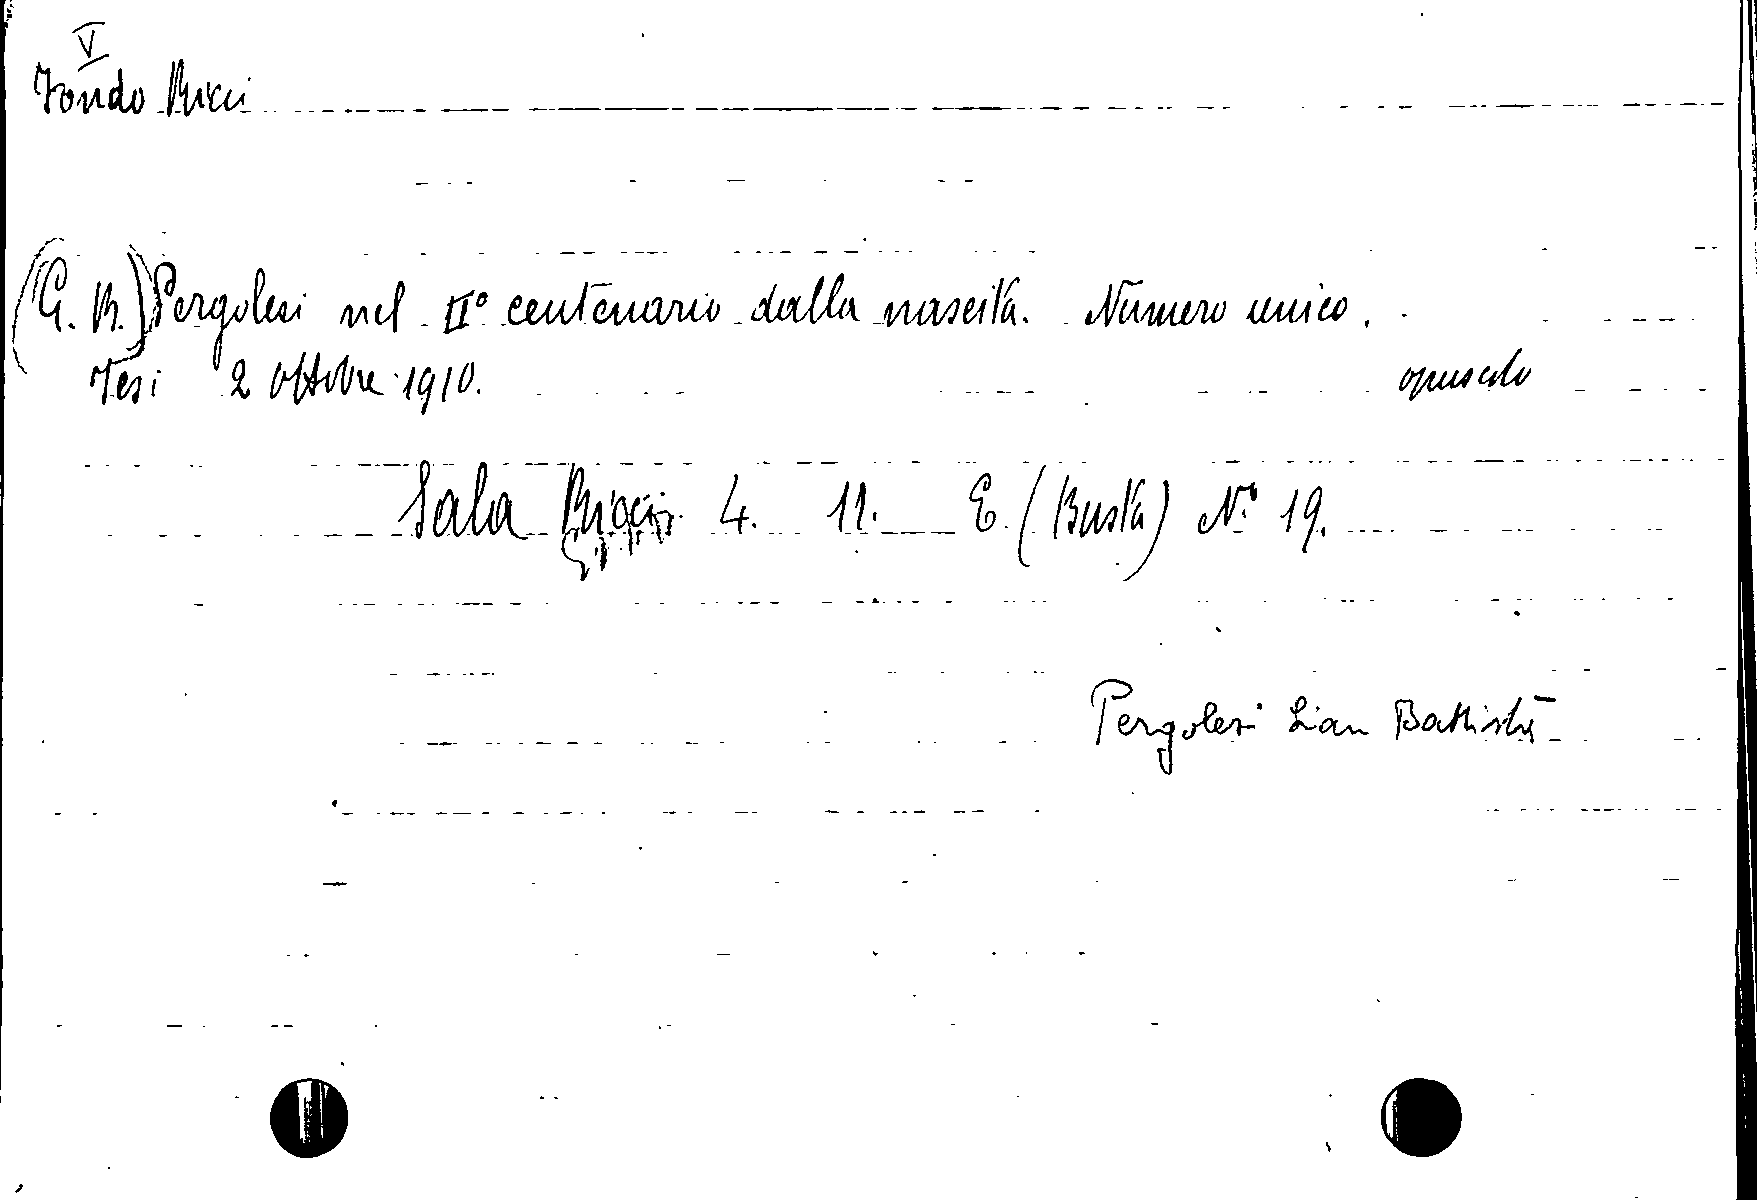 V
Fondo Ricci
(G. B.) Pergolesi nel II° centenario dalla nascita. Numero unico.
Jesi 2 ottobre 1910. opuscolo
Sala 4. 11. E (Busta) N.° 19.
Pergolesi Gian Battista